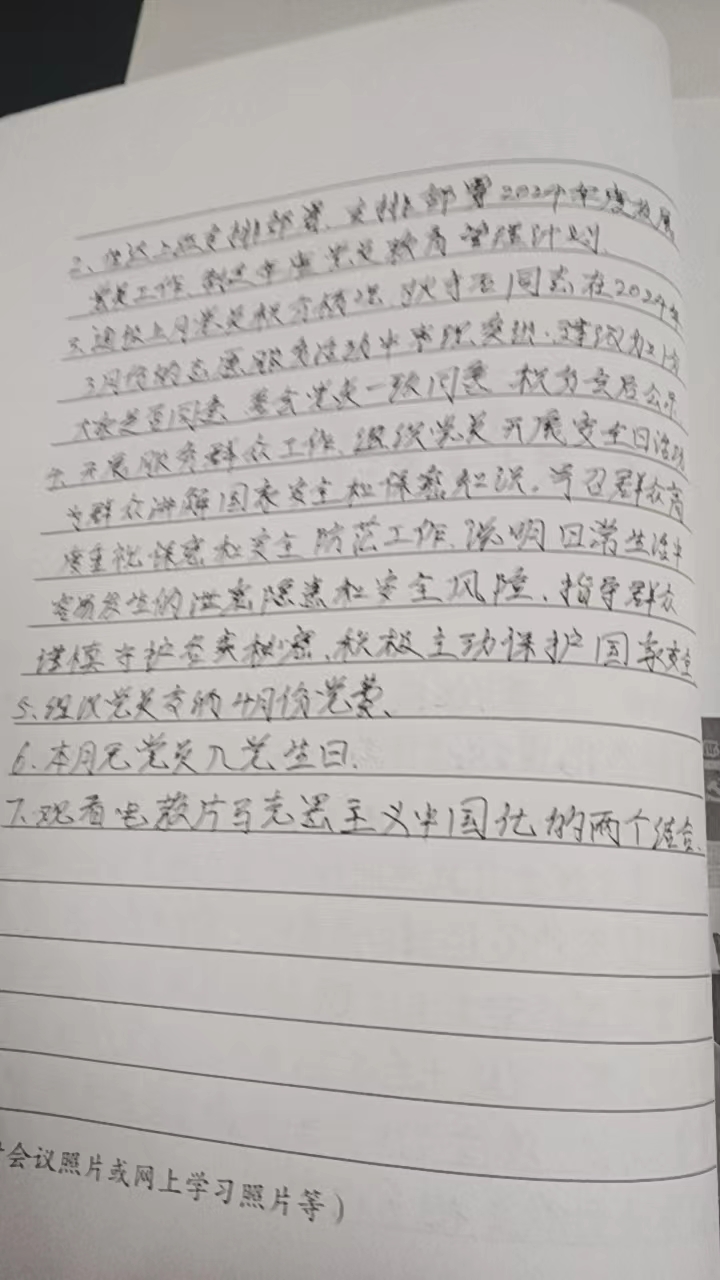 2、上级安排部署,安排部署2024年度发展
党员工作,制定年度党员教育管理计划.
3、通报上月党员积分情况,同志在2024年
3月份的志愿服务活动中表现突出,建议加21分
大家是否同意,参会党员一致同意,积分会后公示.
4、开展服务群众工作,组织党员开展安全日活动
为群众讲解国家安全和保密知识。号召群众高
度重视保密和安全防范工作,说明日常生活中
容易发生的泄密隐患和安全风险,指导群众
谨慎守护各类秘密,积极主动保护国家安全
5、组织党员交纳4月份党费、
6.本月无党员入党生日.
7.观看电教片马克思主义中国化的两个结合.
会议照片或网上学习照片等)